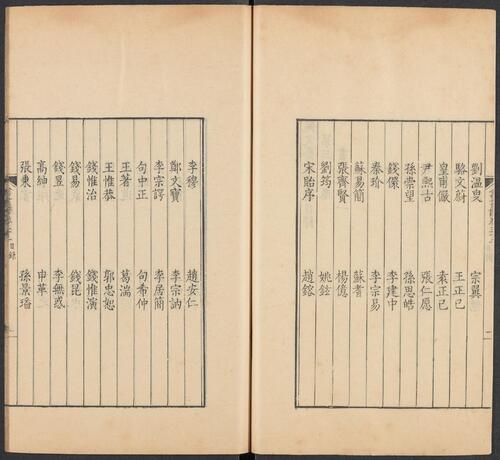 劉溫叟 宗翼
駱文蔚 王正己
皇甫儼 袁正己
尹熙古 張仁愿
孫崇望 孫思皓
錢儼 李建中
秦玠 李宗易
蘇易簡 蘇耆
張齊賢 楊億
劉筠 姚鉉
宋貽序 趙鎔
李穆 趙安仁
鄭文寶 李宗訥
李宗諤 李居簡
句中正 句希仲
王著 葛湍
王惟恭 郭忠恕
錢惟治 錢惟演
錢易 錢昆
錢昱 李無惑
高紳 申革
張秉 孫景璠
目錄